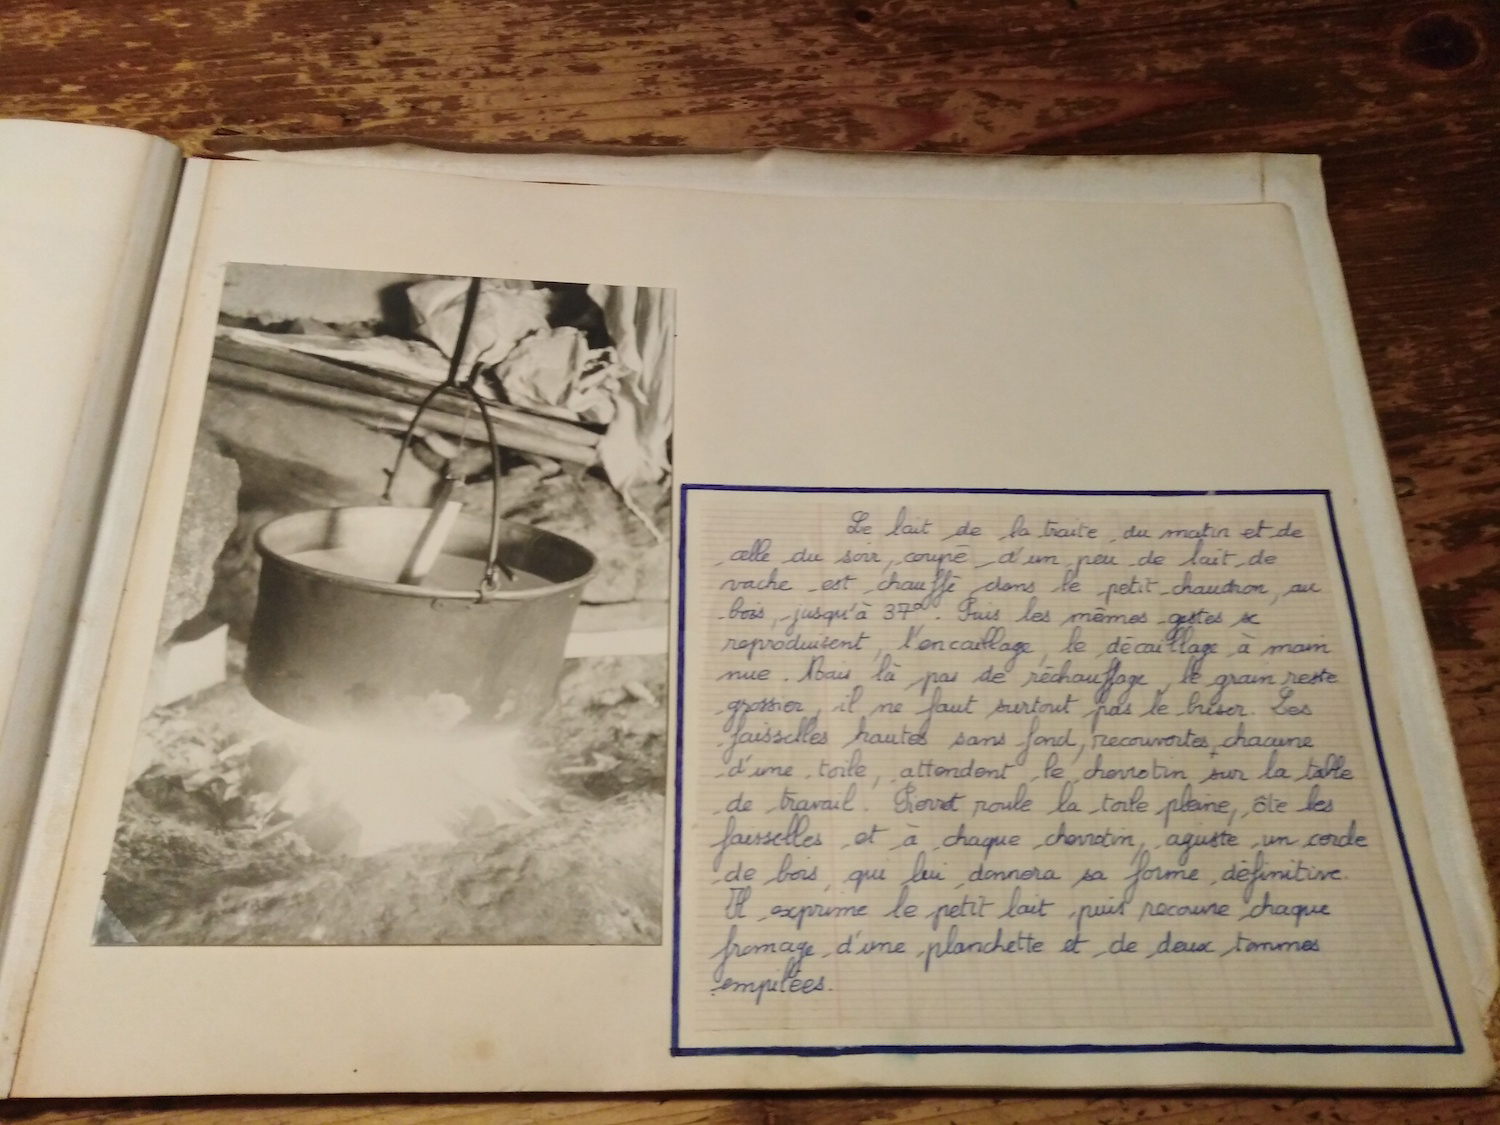 Le lait de la traite du matin et de
celle du soir, coupé d'un peu de lait de
vache est chauffé dans le petit chaudron, au
bois, jusqu'à 37°. Puis les mêmes gestes se
reproduisent, l'encaillage, le décaillage à main
nue. Mais là pas de réchauffage, le grain reste
grossier, il ne faut surtout pas le briser. Les
faisselles hautes sans fond, recouvertes chacune
d'une toile, attendent le chevrotin sur la table
de travail. Pierrot roule la toile pleine, ôte les
faisselles et à chaque chevrotin, aguste un cercle
de bois, qui lui donnera sa forme définitive.
Il exprime le petit lait puis recouvre chaque
fromage d'une planchette et de deux tommes
empilées.